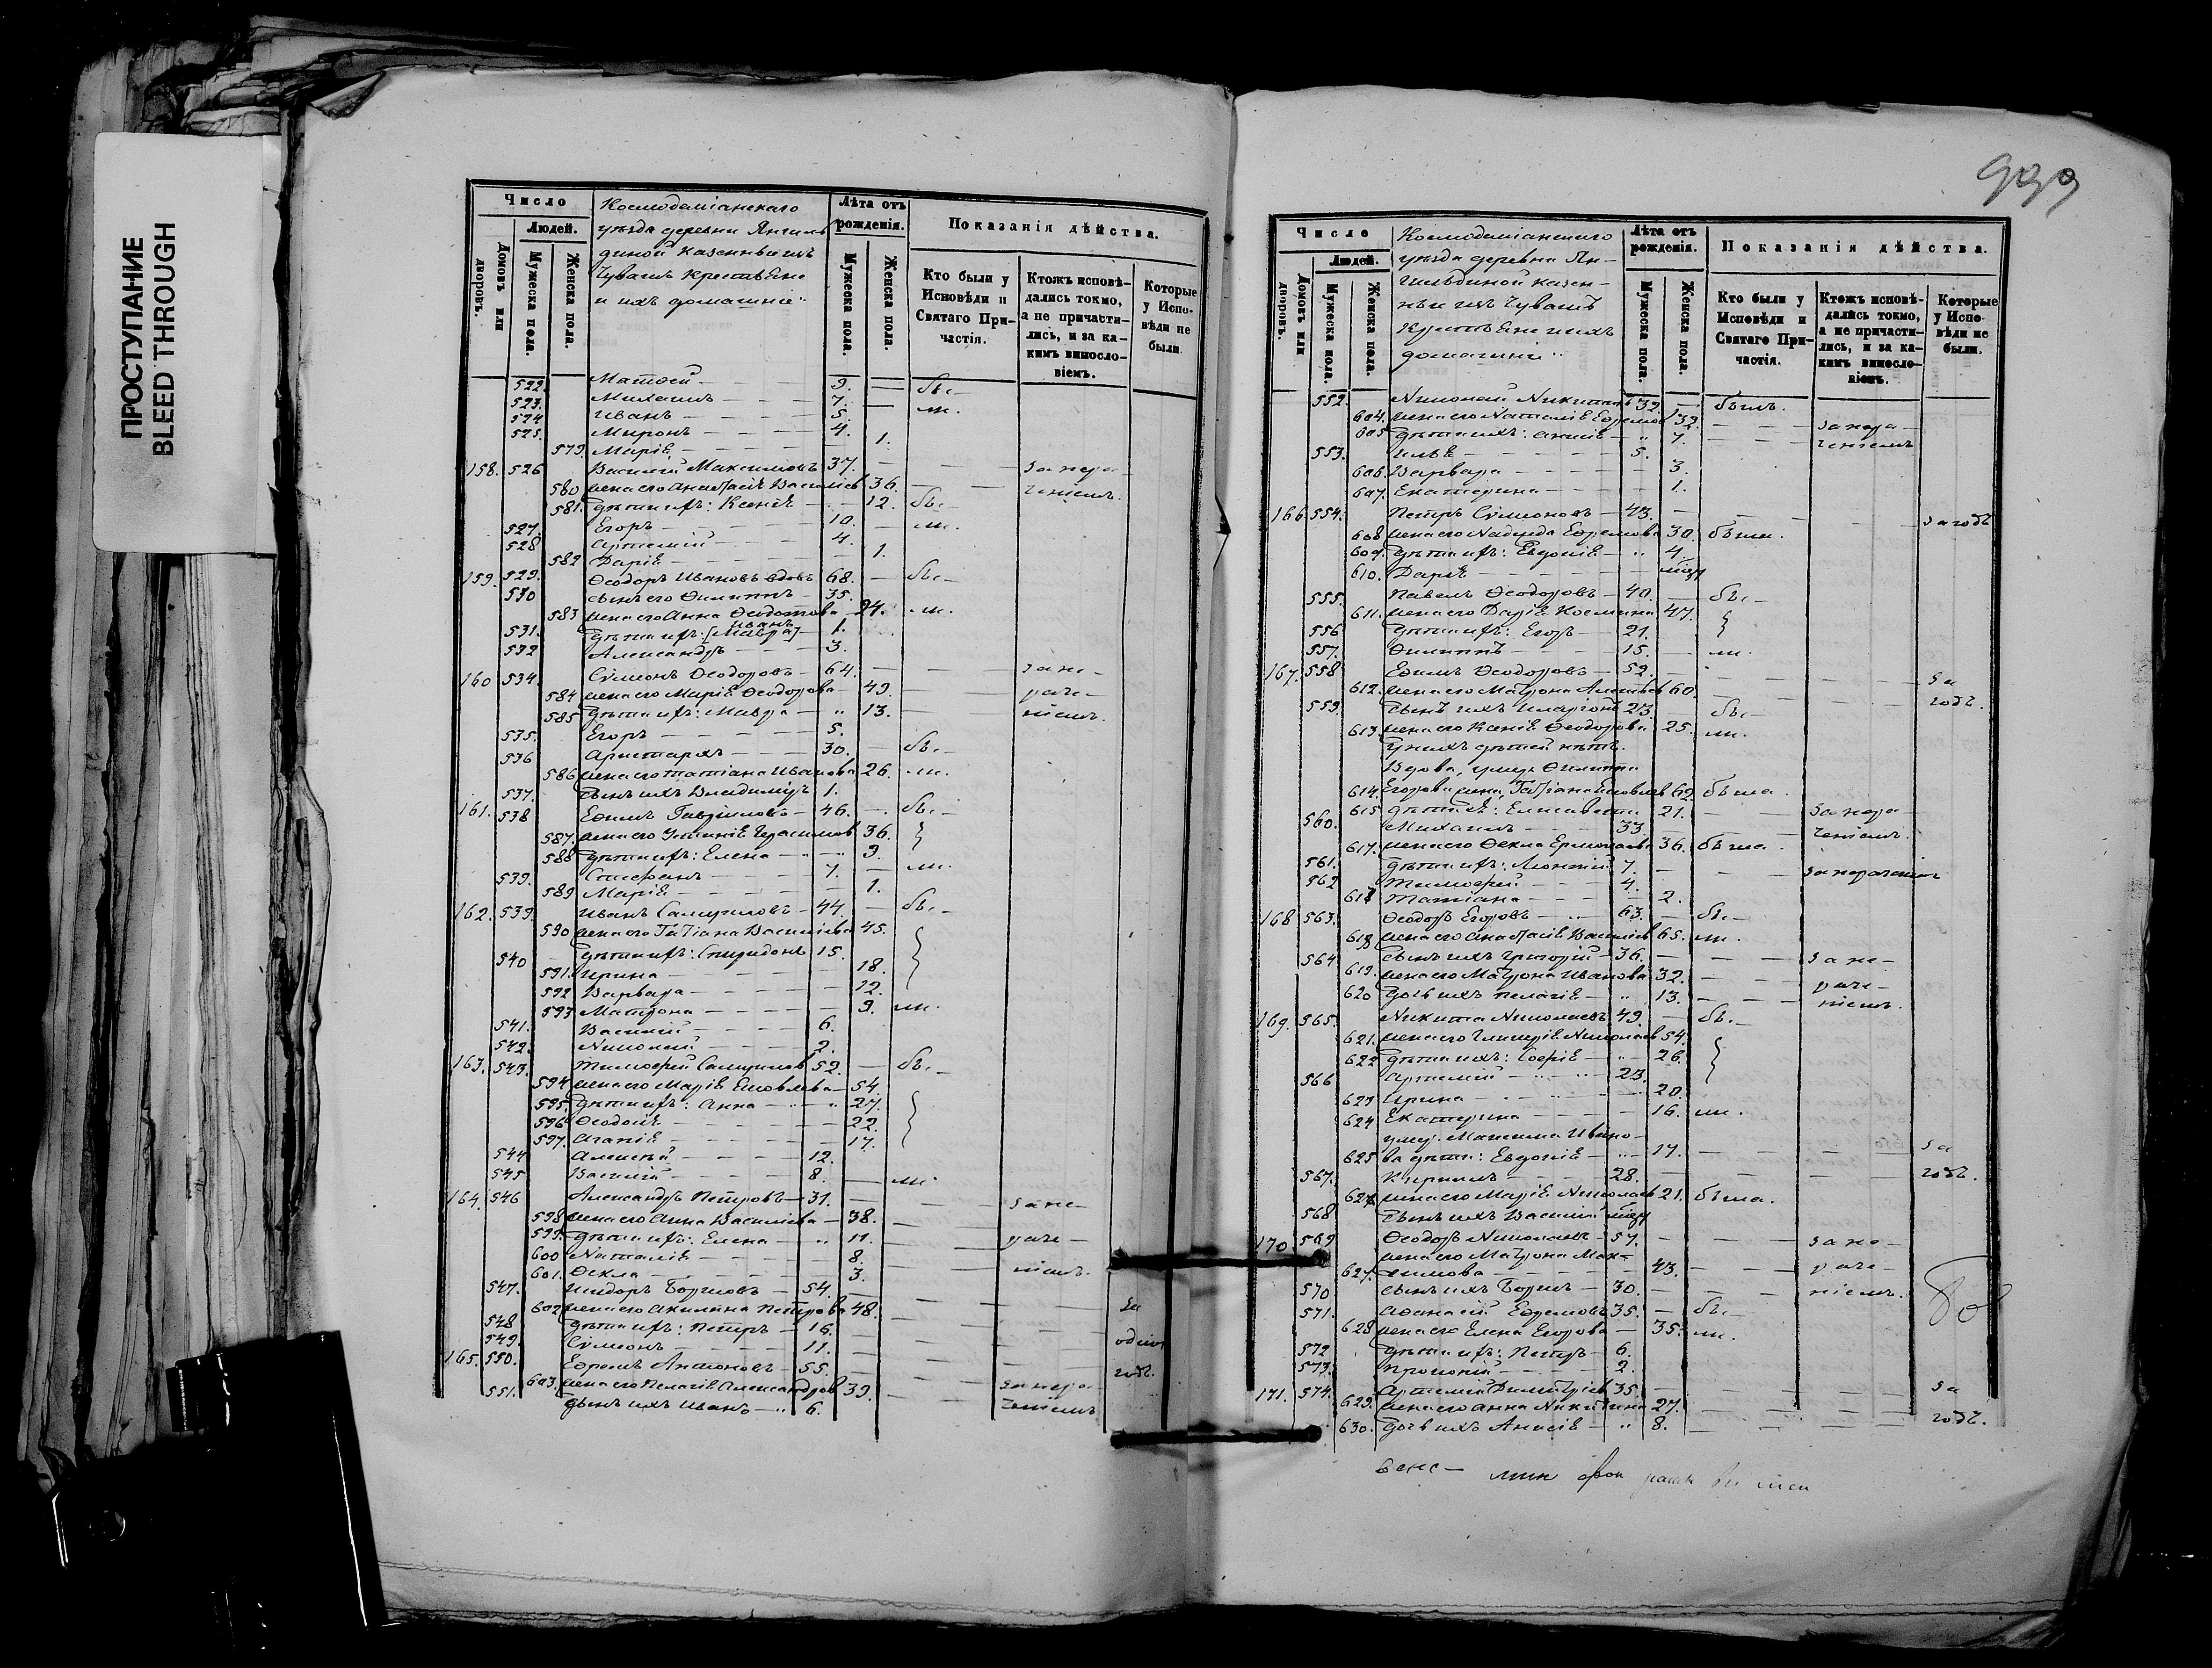 ПРОСТУПАНИЕ
BLEED THROUGH
Число
Людей.
Домовъ или дворовъ.
Мужеска пола.
Женска пола.
Космодемiанскаго
уѣзда деревни Янгиль
диной казенныихъ
Чувашъ крестьяне
и ихъ домашнiе:
Лѣта отъ рожденія.
Мужеска пола.
Женска пола.
Показанія дѣйства.
Кто были у Исповѣди и Святаго Причастія.
Ктожъ исповѣдались токмо, а не причастились, и за какимъ винословіемъ.
Которые у Исповѣди не были.
522. Матѳей 9. бы-
523. Михаилъ 7. ли.
524 Иванъ 5.
525. Миронъ 4.
579. Марiя 1.
158. 526 Василiй Максимовъ 37. за нера-
580 жена его Анастасiя Василiев 36. ченiемъ.
581. дѣти ихъ: Ксенiя 12. бы-
527. Егоръ 10. ли.
528 Артемiй 4.
582 Дарiя 1.
159. 529. Ѳеодоръ Ивановъ вдовъ 68. бы-
530 сынъ его Филиппъ 35.
583 жена его Анна Ѳеодотова 24. ли.
531. дѣти ихъ: [Мавра] Иванъ 1.
532 Александръ 3.
160 534. Сѵмеонъ Ѳеодоровъ 64. за не-
584 жена его Марiя Ѳеодорова 49. раче-
585 дѣти ихъ: Мавра 13. нiемъ.
535. Егоръ 5.
536 Аристархъ 30. бы-
586 жена его Татiана Иванова 26. ли.
537. сынъ ихъ Владимiръ 1.
161. 538 Ефимъ Гаврiиловъ 46. бы-
587. жена его Герасимов 36.
588 дѣти ихъ: Елена 9.
539. Стефанъ 7. ли.
589 Марiя 1.
162. 539. Иванъ Самуиловъ 44. бы-
590 жена его Татiана Василiева 45.
540 дѣти ихъ: Спиридонъ 15.
591. Ирина 18.
592 Варвара 12.
593 Матрона 9. ли.
541. Василiй 6.
542. Николай 2.
163. 543. Тимоѳей Самуилов 52. бы-
594 жена его Марiя Яковлева 54.
595. дѣти ихъ: Анна 27.
596 Ѳеодосiя 22.
597. Агапiя 17.
544 Алексѣй 12.
545 Василiй 8. ли.
164. 546 Александръ Петровъ 31. за не-
598 жена его Анна Василiева 38.
599. дѣти ихъ: Елена 11. раче-
600 Наталiя 8.
601. Ѳекла 3. нiемъ.
547. Исидоръ Борисовъ 54.
602 жена его Акилина Петрова 48. за
548 дѣти ихъ: Петръ 16.
549. Сѵмеонъ 11.
165. 550. Ефремъ Антоновъ 55. годъ.
603. жена его Пелагiя Александров 39. за нера-
551. сынъ ихъ Иванъ 6. ченiемъ
999
Число
Людей.
Домовъ или дворовъ.
Мужеска пола.
Женска пола.
Космодемiанскаго
уѣзда деревни Ян-
гильдиной казен-
ныихъ Чувашъ
крестьяне и ихъ
домашнiе:
Лѣта отъ рожденія.
Мужеска пола.
Женска пола.
Показанія дѣйства.
Кто были у Исповѣди и Святаго Причастія.
Ктожъ исповѣдались токмо, а не причастились, и за какимъ винословіемъ.
Которые у Исповѣди не были.
552. Николай Никитинъ 32. былъ.
604. жена его Наталiя Ефремов 32. за нера-
605 дѣти ихъ: Анисiя 7. ченiемъ
553. Илья 5.
606. Варвара 3.
607. Екатерина 1.
166 554. Петръ Сѵмеоновъ 43. за годъ
608 жена его Надежда Ефремова 30. была.
609. дѣти ихъ: Евдокiя 4.
610. Дарiя
555. Павелъ Ѳеодоровъ 40. бы-
611. жена его Дарiя Космина 47.
556 дѣти ихъ: Егоръ 21.
557. Филиппъ 15. ли.
167. 558 Ефимъ Ѳеодоровъ 59. за
612. жена его Матрона Алексѣев 60.
559. сынъ ихъ Иларiонъ 23. бы- годъ.
613. жена его Ксенiя Ѳеодорова 25. ли.
у нихъ дѣтей нѣтъ.
Вдова, умер. Филиппа
614. Егорова жена, Татiана Яковлев 62. была.
615 дѣти ея: Елисавета 21. за нера-
560. Михаилъ 33. ченiемъ.
617. жена его Ѳекла Ермолаева 36. была.
561. дѣти ихъ: Леонтiй 7. за нераченiемъ
562 Тимоѳей 4.
617 Татiана 2.
168 563. Ѳеодоръ Егоровъ 63. бы-
618 жена его Анастасiя Василiев 65. ли.
564 сынъ ихъ Григорiй 36. за не-
619. жена его Матрона Иванова 32. раче-
620 дочь ихъ Пелагiя 13. нiемъ.
169. 565. Никита Николаевъ 49. бы-
621. жена его Гликерiя Николаев 54.
622 дѣти ихъ: Софiя 26.
566 Артемiй 23.
623 Ирина 20.
624 Екатерина 16. ли.
умер. Максима Ивано-
625 ва дѣти: Евдокiя 17. за
567. Кирилъ 28. годъ.
626 жена его Марiя Николаев 21. была.
568 сынъ ихъ Василiй
170. 569 Ѳеодоръ Николаевъ 57. за не-
жена его Матрона Мак-
627. симова 43. раче-
570 сынъ ихъ Борисъ 30. нiемъ.
571. Аѳанасiй Ефремовъ 35. бы-
628 жена его Елена Егорова 35. ли.
572 дѣти ихъ: Петръ 6.
573. Прокопiй 2.
171. 574. Артемiй Димитрiев 35. за
629. жена его Анна Никитина 27.
630. дочь ихъ Анисiя 8. годъ.